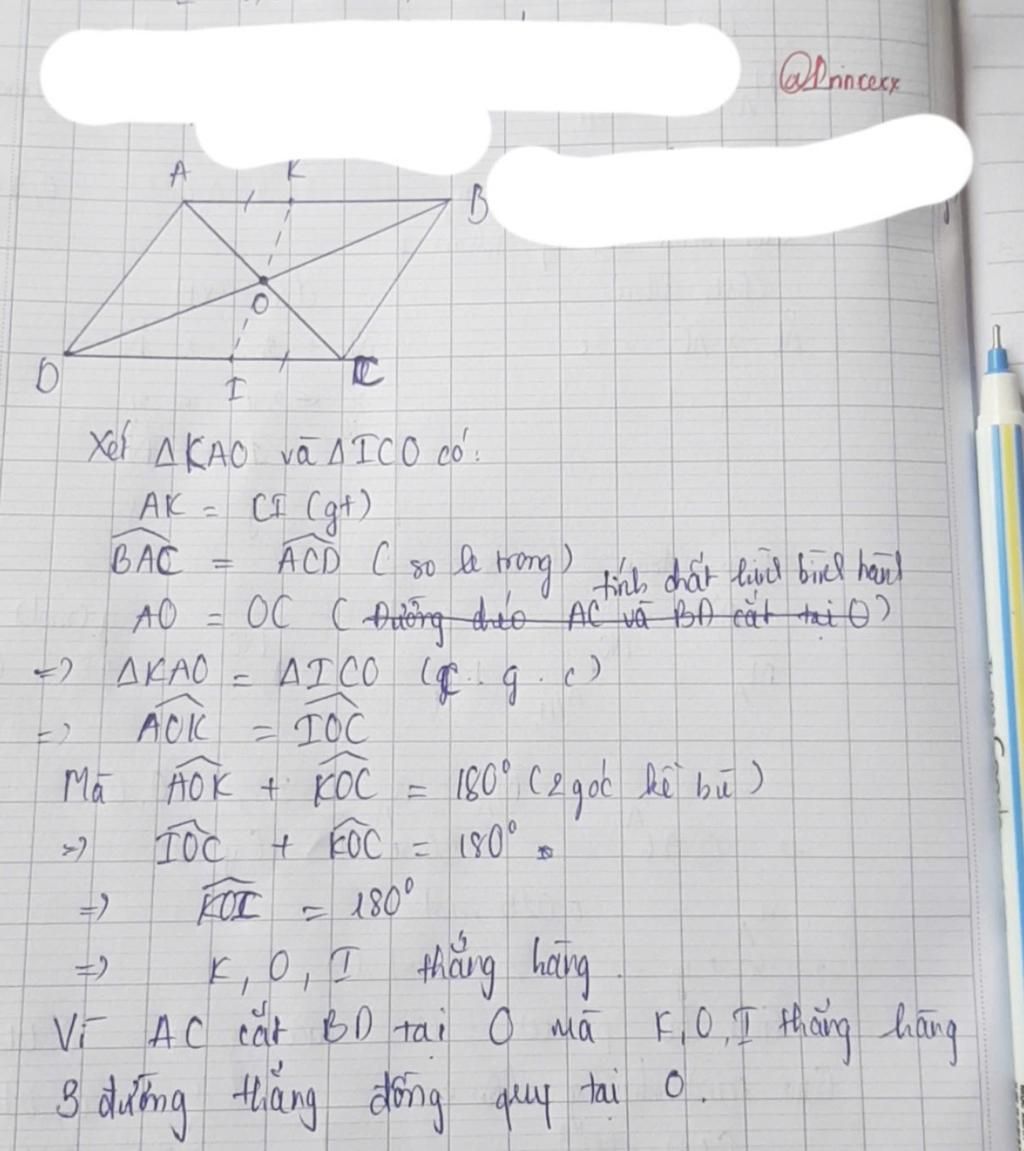 @Princexx
A K
B
O
D I C
Xét ΔKAO và ΔICO có:
AK = CI (gt)
BAC = ACD (so le trong)
tính chất hình bình hành
AO = OC (Đường chéo AC và BD cắt tại O)
=> ΔKAO = ΔICO (c.g.c)
=> AOK = IOC
Mà AOK + KOC = 180° (2 góc kề bù)
=> IOC + KOC = 180°
=> KOI = 180°
=> K, O, I thẳng hàng
Vì AC cắt BD tại O mà K, O, I thẳng hàng
3 đường thẳng đồng quy tại O.